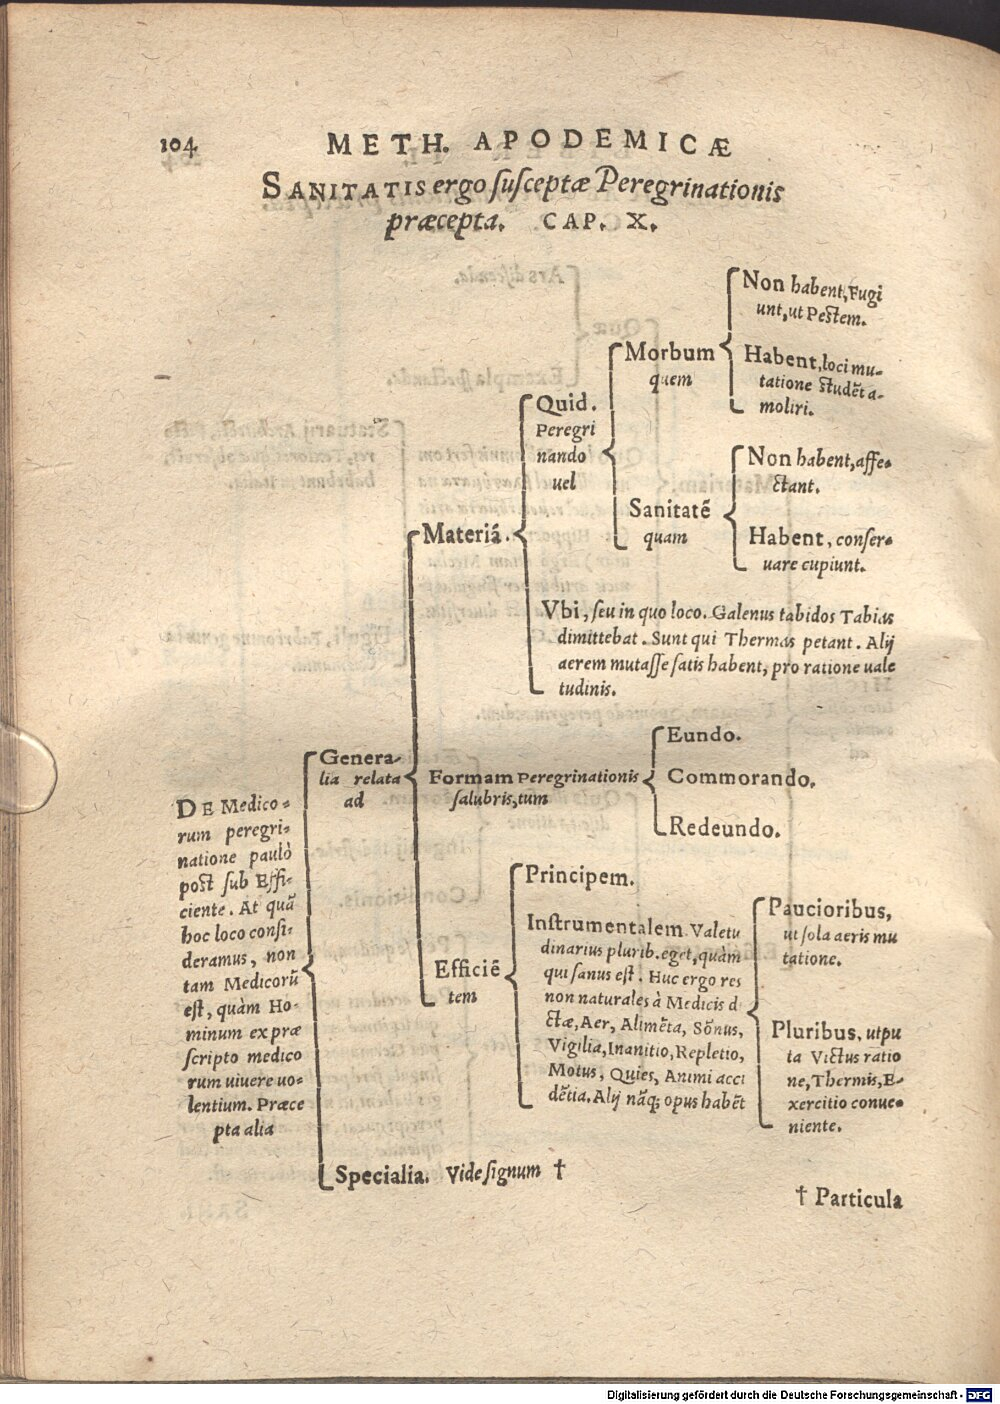 104
METH. APODEMICÆ
SANITATIS ergo susceptæ Peregrinationis
præcepta. CAP. X.
DE Medico-
rum peregri-
natione paulò
post sub Effi-
ciente. At quã
hoc loco consi-
deramus, non
tam Medicorũ
est, quàm Ho-
minum ex præ
scripto medico
rum uiuere uo-
lentium. Præce
pta alia
Genera-
lia relata
ad
Materiã.
Quid.
Peregri
nando
uel
Morbum
quem
Non habent, Fugi
unt, ut Pestem.
Habent, loci mu-
tatione studẽt a-
moliri.
Sanitatẽ
quam
Non habent, affe-
ctant.
Habent, conser-
uare cupiunt.
Vbi, seu in quo loco. Galenus tabidos Tabias
dimittebat. Sunt qui Thermas petant. Alij
aerem mutasse satis habent, pro ratione uale
tudinis.
Formam Peregrinationis
salubris, tum
Eundo.
Commorando.
Redeundo.
Efficiẽ
tem
Principem.
Instrumentalem. Valetu
dinarius plurib. eget, quàm
qui sanus est. Huc ergo res
non naturales à Medicis d
ctæ, Aer, Alimẽta, Sõnus,
Vigilia, Inanitio, Repletio,
Motus, Quies, Animi acci
dẽtia. Alij nãq; opus habẽt
Paucioribus,
ut sola aeris mu
tatione.
Pluribus, utpu
ta Victus ratio
ne, Thermis, E-
xercitio conue-
niente.
Specialia. Vide signum †
† Particula
Digitalisierung gefördert durch die Deutsche Forschungsgemeinschaft - DFG